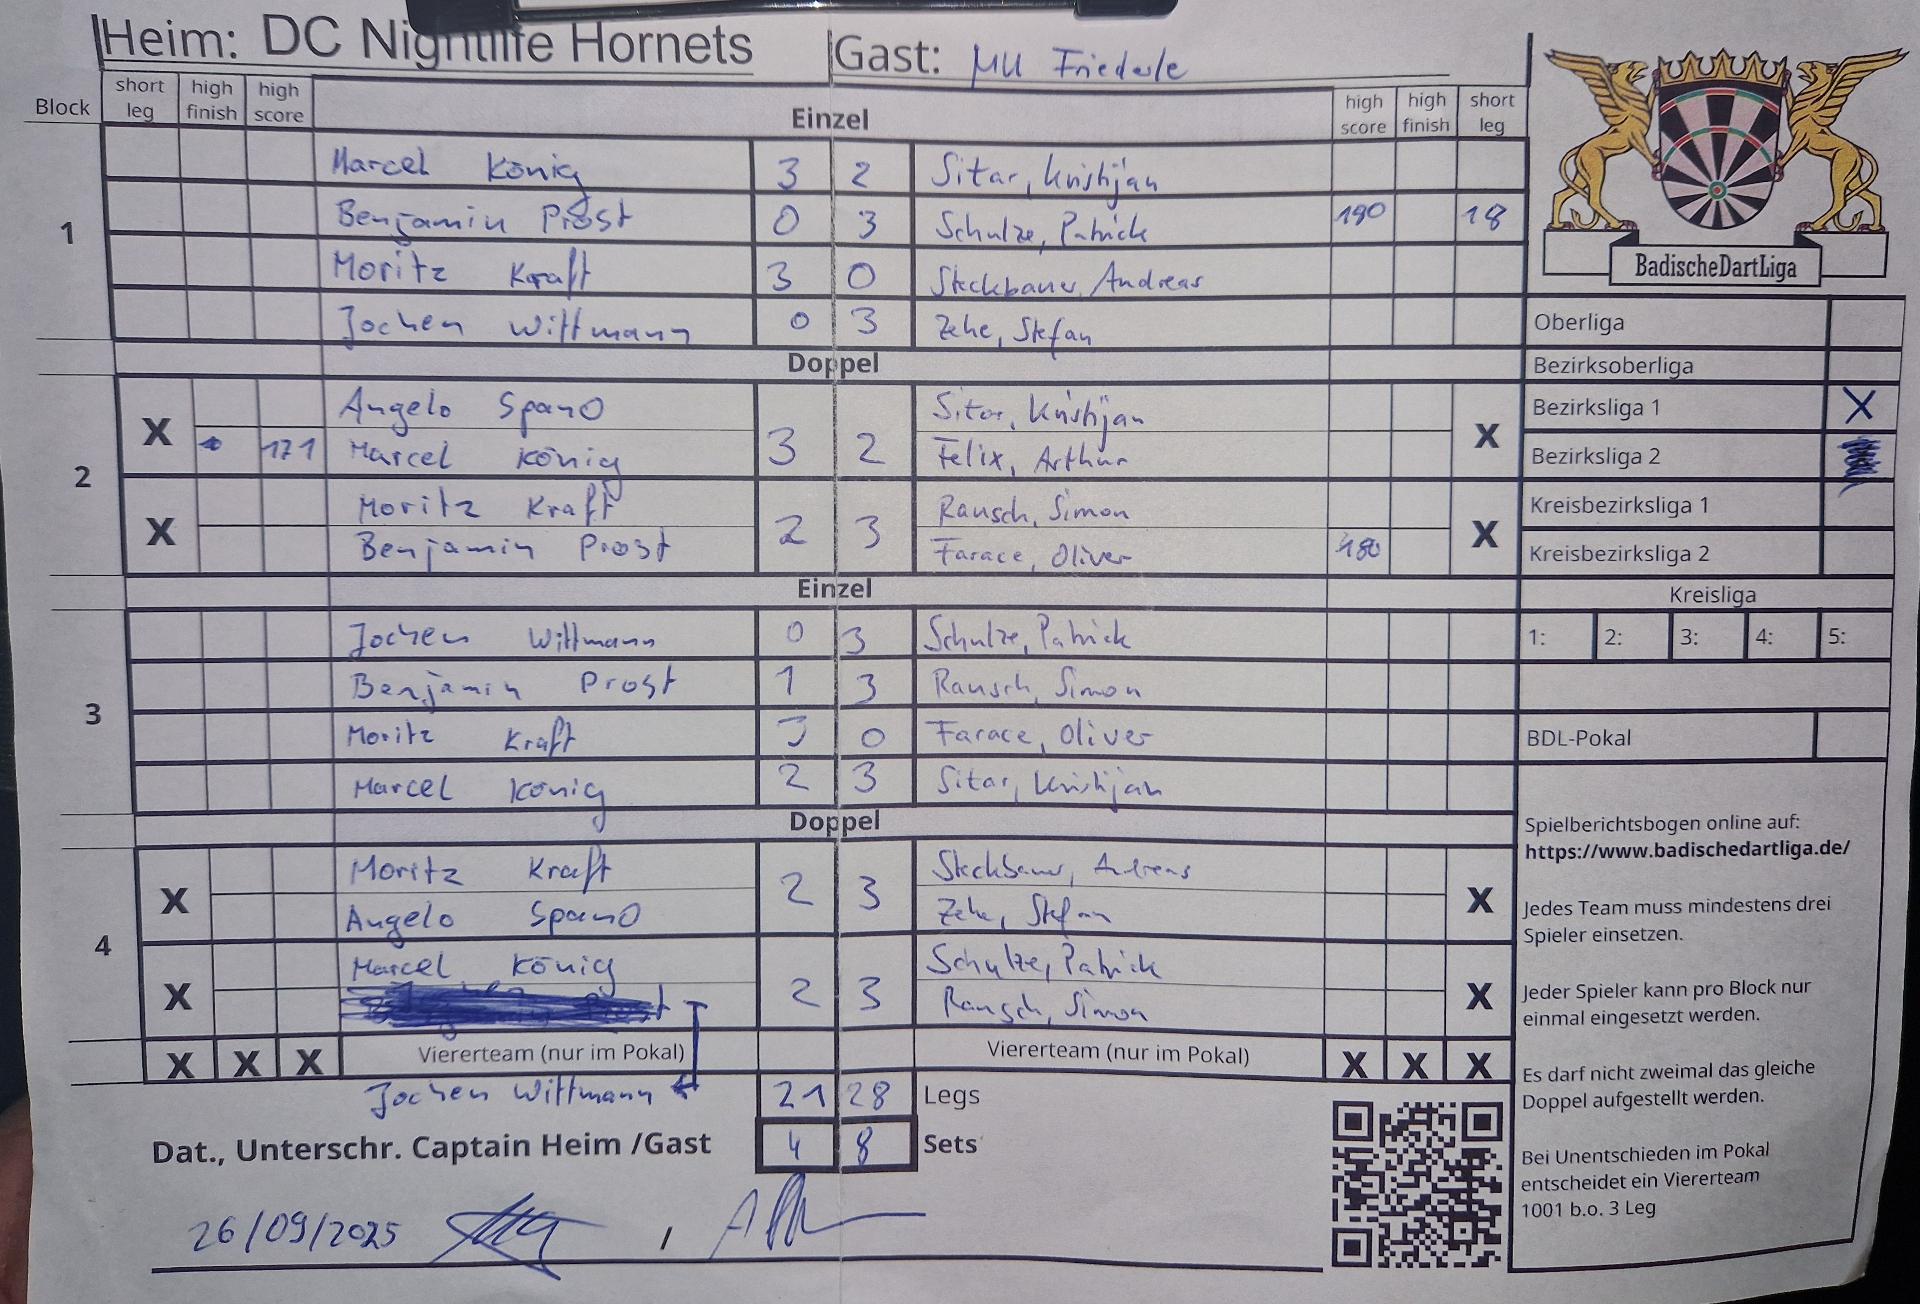 Heim: DC Nightlife Hornets Gast: MU Friederle
Block short leg high finish high score Einzel high score high finish short leg
1
Marcel König 3 2 Sitar, Kristijan
Benjamin Prost 0 3 Schulze, Patrick 180 18
Moritz Kraft 3 0 Steckbauer, Andreas
Jochen Wittmann 0 3 Zehe, Stefan
Doppel
2
X Angelo Spano 3 2 Sitar, Kristijan X
171 Marcel König Felix, Arthur
X Moritz Kraft 2 3 Rausch, Simon X
Benjamin Prost Farace, Oliver 180
Einzel
3
Jochen Wittmann 0 3 Schulze, Patrick
Benjamin Prost 1 3 Rausch, Simon
Moritz Kraft 3 0 Farace, Oliver
Marcel König 2 3 Sitar, Kristijan
Doppel
4
X Moritz Kraft 2 3 Steckbauer, Andreas X
Angelo Spano Zehe, Stefan
X Marcel König 2 3 Schulze, Patrick X
Rausch, Simon
X X X Viererteam (nur im Pokal) Viererteam (nur im Pokal) X X X
Jochen Wittmann 21 28 Legs
Dat., Unterschr. Captain Heim /Gast 4 8 Sets
26/09/2025 /
BadischeDartLiga
Oberliga
Bezirksoberliga
Bezirksliga 1 X
Bezirksliga 2
Kreisbezirksliga 1
Kreisbezirksliga 2
Kreisliga
1: 2: 3: 4: 5:
BDL-Pokal
Spielberichtsbogen online auf:
https://www.badischedartliga.de/
Jedes Team muss mindestens drei
Spieler einsetzen.
Jeder Spieler kann pro Block nur
einmal eingesetzt werden.
Es darf nicht zweimal das gleiche
Doppel aufgestellt werden.
Bei Unentschieden im Pokal
entscheidet ein Viererteam
1001 b.o. 3 Leg